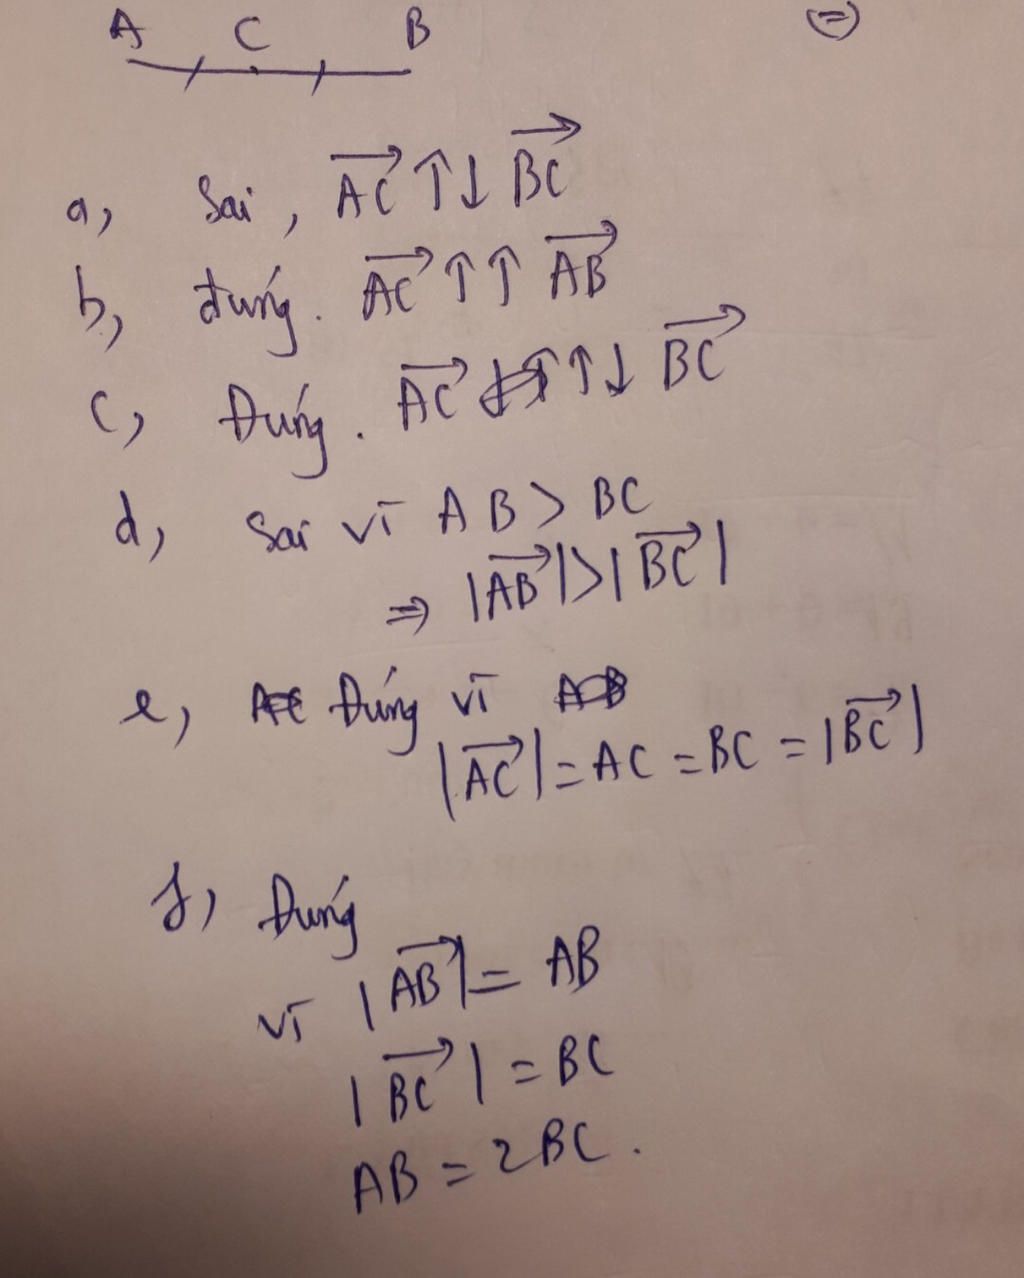 A C B
(=)
a, Sai, $\overrightarrow{AC}$ ↑↓ $\overrightarrow{BC}$
b, đúng. $\overrightarrow{AC}$ ↑↑ $\overrightarrow{AB}$
c, Đúng. $\overrightarrow{AC}$ ↑↓ $\overrightarrow{BC}$
d, Sai vì AB > BC
⇒ |$\overrightarrow{AB}$| > |$\overrightarrow{BC}$|
e, Đúng vì
|$\overrightarrow{AC}$| = AC = BC = |$\overrightarrow{BC}$|
f, Đúng
vì |$\overrightarrow{AB}$| = AB
|$\overrightarrow{BC}$| = BC
AB = 2BC.